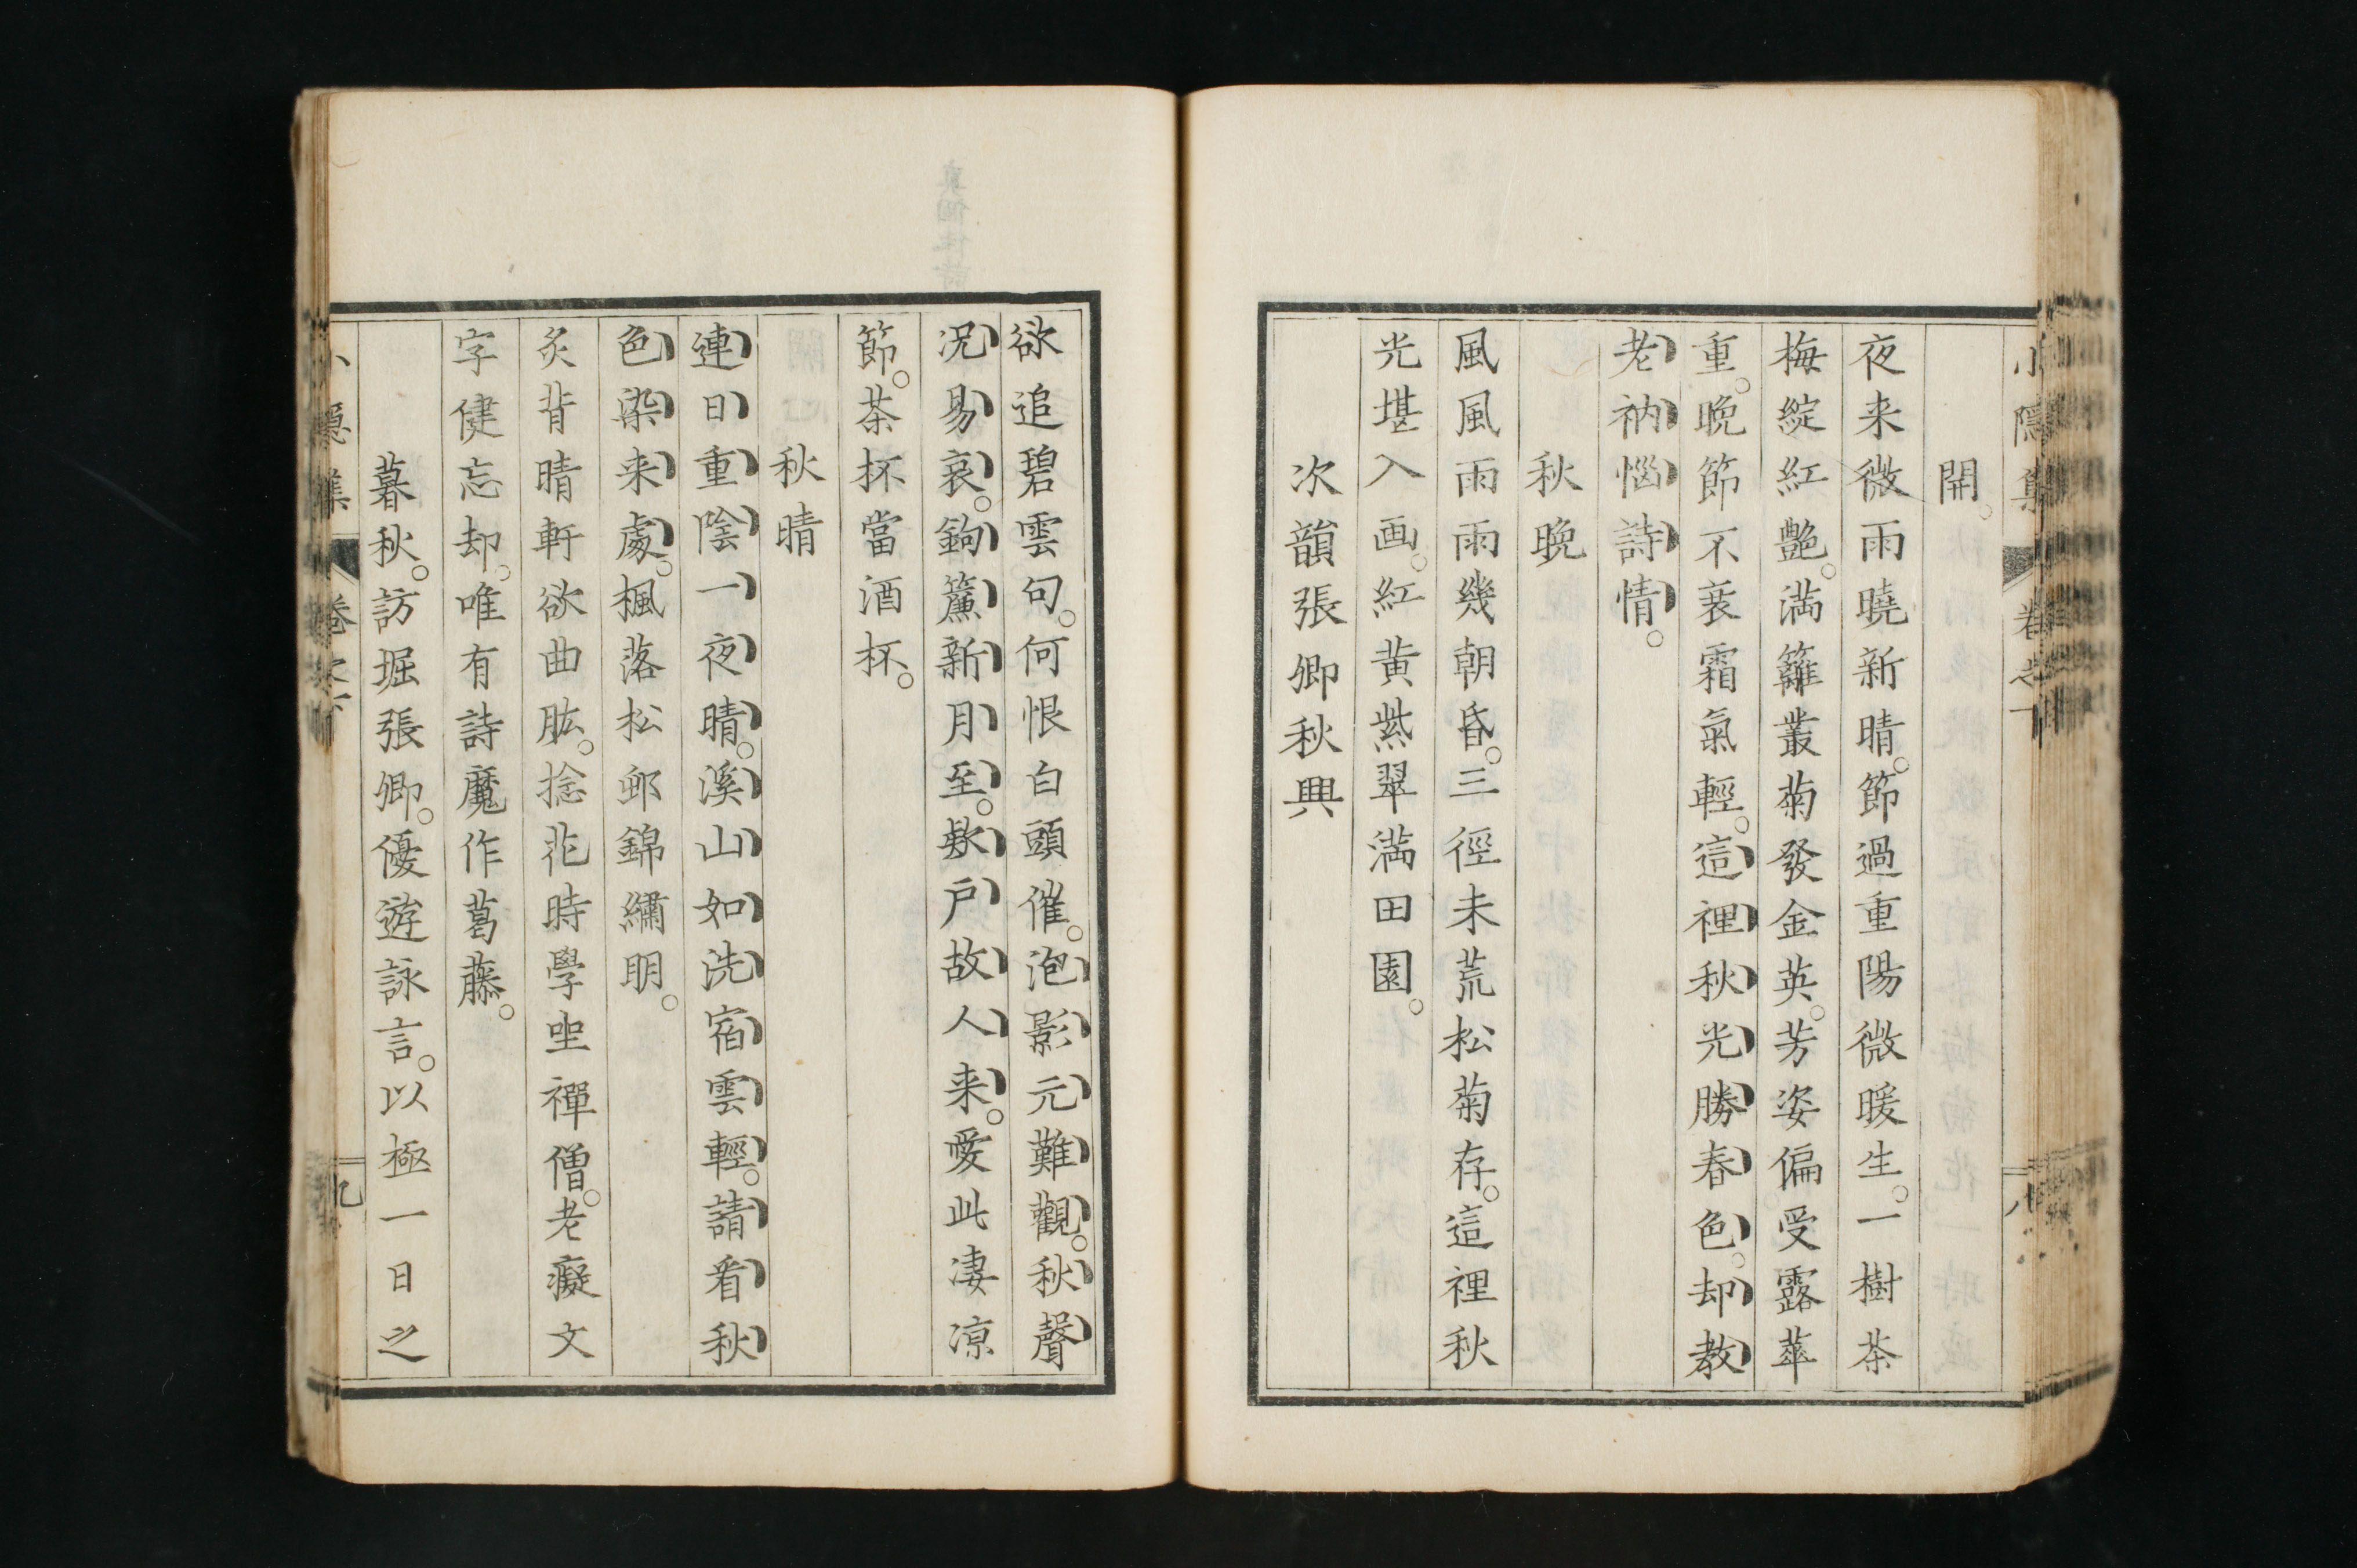 開。
夜来微雨曉新晴。節過重陽微暖生。一樹茶
梅綻紅艶。満籬叢菊發金英。芳姿偏受露華
重。晩節不衰霜氣輕。這裡秋光勝春色。却教
老衲惱詩情。
秋晩
風風雨雨幾朝昏。三徑未荒松菊存。這裡秋
光堪入画。紅黄紫翠満田園。
次韻張卿秋興
欲追碧雲句。何恨白頭催。泡影元難觀。秋聲
況易哀。鉤簾新月至。欵戸故人来。愛此凄凉
節。茶杯當酒杯。
秋晴
連日重陰一夜晴。溪山如洗宿雲輕。請看秋
色染来處。楓落松邨錦繡明。
炙背晴軒欲曲肱。捻花時學坐禪僧。老癡文
字健忘却。唯有詩魔作葛藤。
暮秋。訪堀張卿。優遊詠言。以極一日之